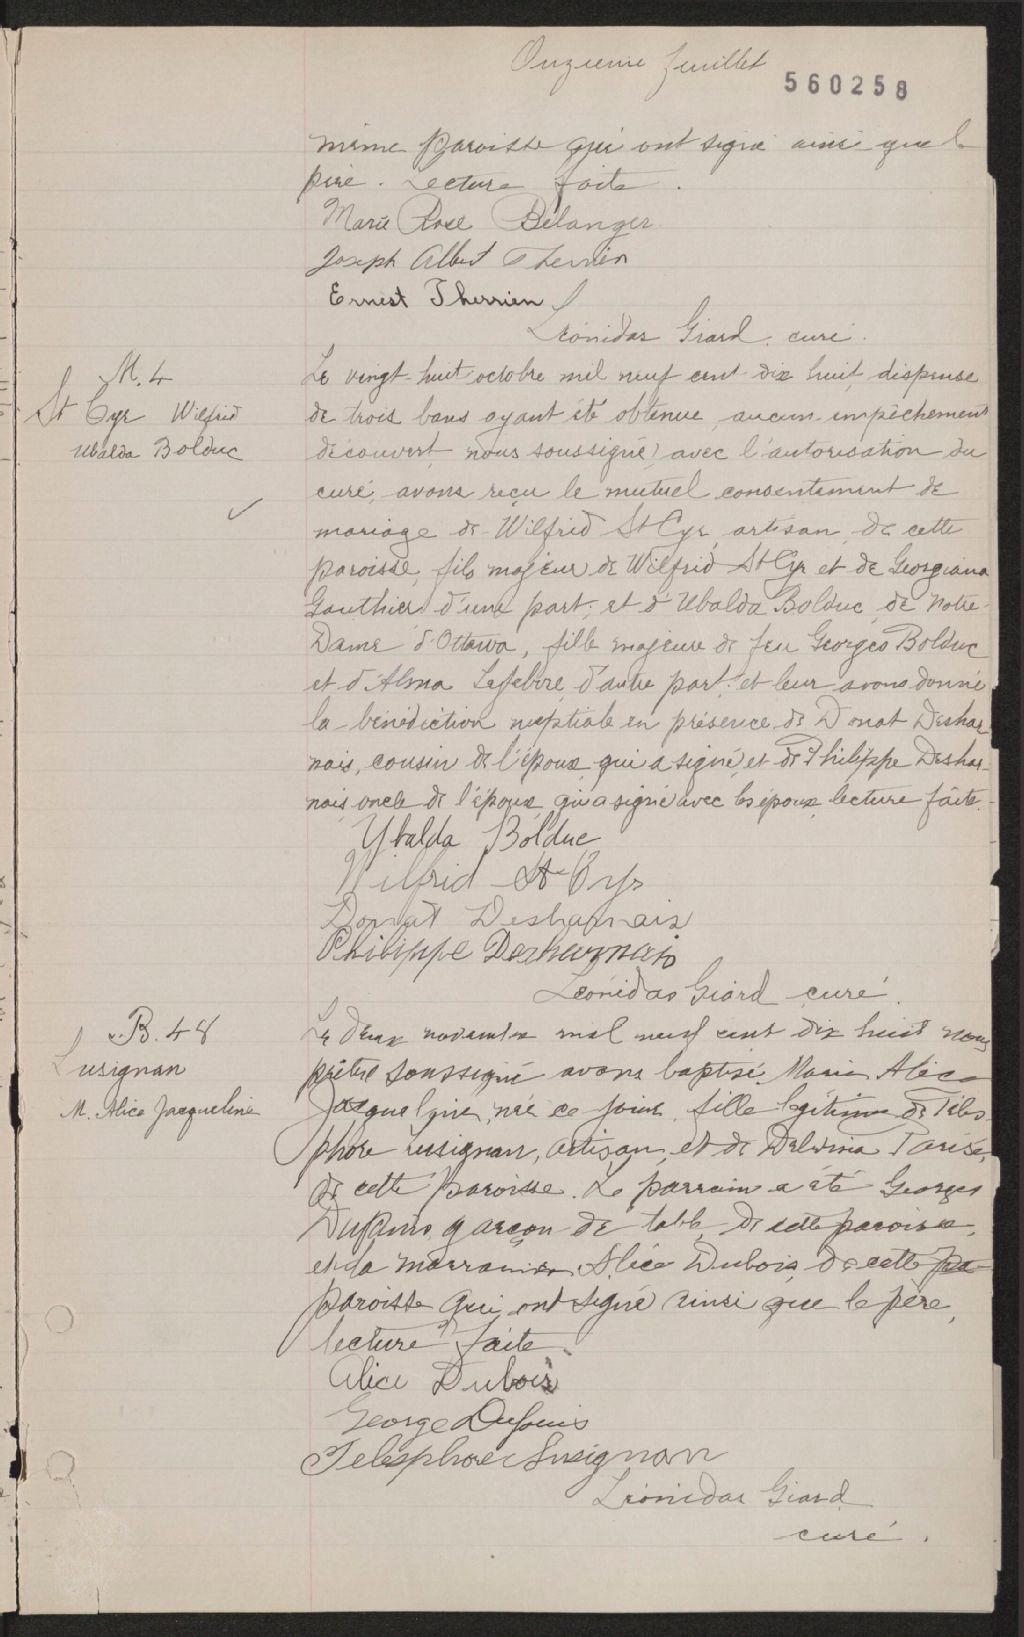 Onzieme feuillet
560258
même paroisse qui ont signé ainsi que le
père. Lecture faite.
Marie Rose Bélanger
Joseph Albert Therrien
Ernest Therrien
Léonidas Giard, curé.
M. 4
St Cyr Wilfrid
Ubalda Bolduc
Le vingt-huit octobre mil neuf cent dix huit, dispense
de trois bans ayant été obtenue, aucun empêchement
découvert, nous soussigné, avec l'autorisation du
curé, avons reçu le mutuel consentement de
mariage de Wilfrid St Cyr, artisan, de cette
paroisse, fils majeur de Wilfrid St Cyr et de Georgiana
Gauthier d'une part; et d'Ubalda Bolduc, de Notre-
Dame d'Ottawa, fille majeure de feu Georges Bolduc
et d'Alma Lefebvre, d'autre part, et leur avons donné
la bénédiction nuptiale en présence de Donat Deshar-
nais, cousin de l'époux qui a signé, et de Philippe Deshar-
nais, oncle de l'époux, qui a signé avec les époux, lecture faite.
Ybalda Bolduc
Wilfrid St Cyr
Donat Desharnais
Philippe Desharnais
Léonidas Giard curé.
B. 48
Lusignan
M. Alice Jacqueline
Le deux novembre mil neuf cent dix huit nous
prêtre soussigné avons baptisé Marie Alice
Jacqueline, née ce jour, fille légitime de Téles-
phore Lusignan, artisan, et de Delvina Parisé,
de cette paroisse. Le parrain a été Georges
garçon de table, de cette paroisse,
et la marraine Alice Dubois, de cette pa
paroisse qui ont signé ainsi que le père,
lecture faite.
Alice Dubois
George
Telesphore Lusignan
Léonidas Giard
curé.